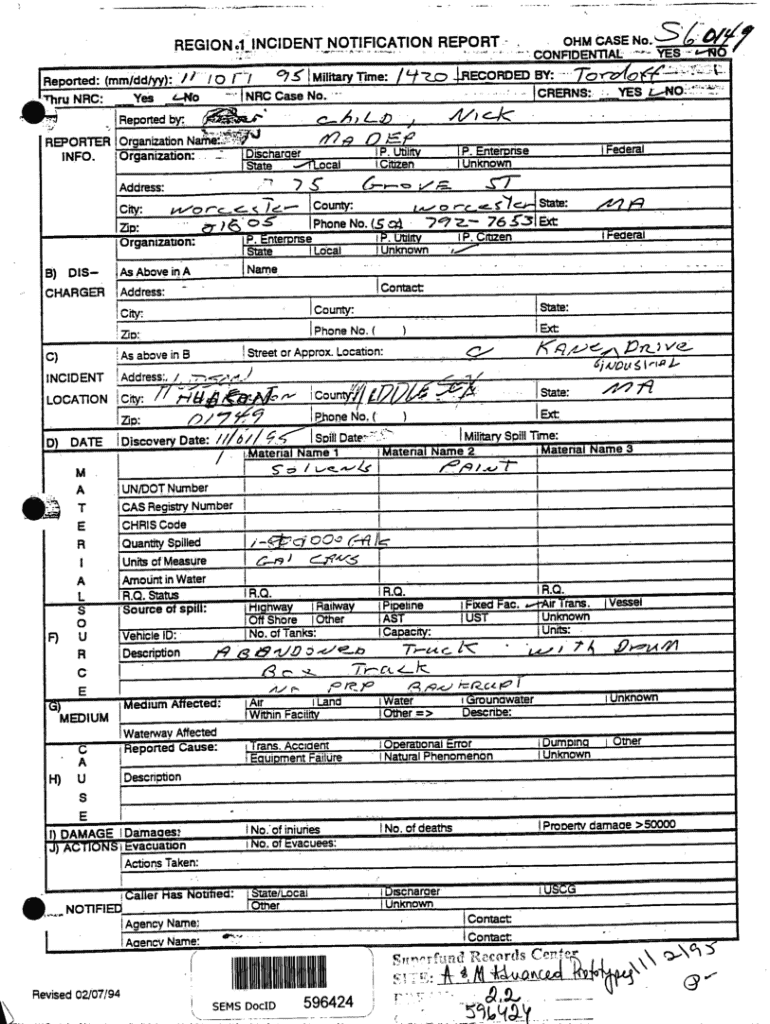 REGION 1 INCIDENT NOTIFICATION REPORT OHM CASE No. S60149
CONFIDENTIAL YES NO
Reported: (mm/dd/yy): 95 Military Time: 1420 RECORDED BY: Tordoff
Thru NRC: Yes No NRC Case No. CRERNS: YES NO
Reported by: Child, Nick
REPORTER Organization Name: MA DEP
INFO. Organization: Discharger P. Utility P. Enterprise Federal
State Local Citizen Unknown
Address: 75 Grove ST
City: Worcester County: Worcester State: MA
Zip: 01605 Phone No. (50 792-7653 Ext:
Organization: P. Enterprise P. Utility P. Citizen Federal
State Local Unknown
B) DIS- As Above in A Name
CHARGER Address: Contact:
City: County: State:
Zip: Phone No. ( ) Ext:
C) As above in B Street or Approx. Location: Kane Drive
INDUSTRIAL
INCIDENT Address:
LOCATION City: County: MIDDLESEX State: MA
Zip: 01749 Phone No. ( ) Ext:
D) DATE Discovery Date: 11/01/95 Spill Date: Military Spill Time:
Material Name 1 Material Name 2 Material Name 3
M Solvents PAINT
A UN/DOT Number
T CAS Registry Number
E CHRIS Code
R Quantity Spilled
I Units of Measure GAL CANS
A Amount in Water
L R.Q. Status R.Q. R.Q. R.Q.
S Source of spill: Highway Railway Pipeline Fixed Fac. Air Trans. Vessel
O Off Shore Other AST UST Unknown
F) U Vehicle ID: No. of Tanks: Capacity: Units:
R Description ABANDONED Truck with Drum
C Box Truck
E No PRP BANKRUPT
G) Medium Affected: Air Land Water Groundwater Unknown
MEDIUM Within Facility Other => Describe:
Waterway Affected
C Reported Cause: Trans. Accident Operational Error Dumping Other
A Equipment Failure Natural Phenomenon Unknown
H) U Description
S
E
I) DAMAGE Damages: No. of injuries No. of deaths Property damage >50000
J) ACTIONS Evacuation No. of Evacuees:
Actions Taken:
Caller Has Notified: State/Local Discharger USCG
NOTIFIED Other Unknown
Agency Name: Contact:
Agency Name: Contact:
Superfund Records Center
SITE: A & M Advanced Prototypes 11/2/95
2.2
596424
Revised 02/07/94
SEMS DocID 596424